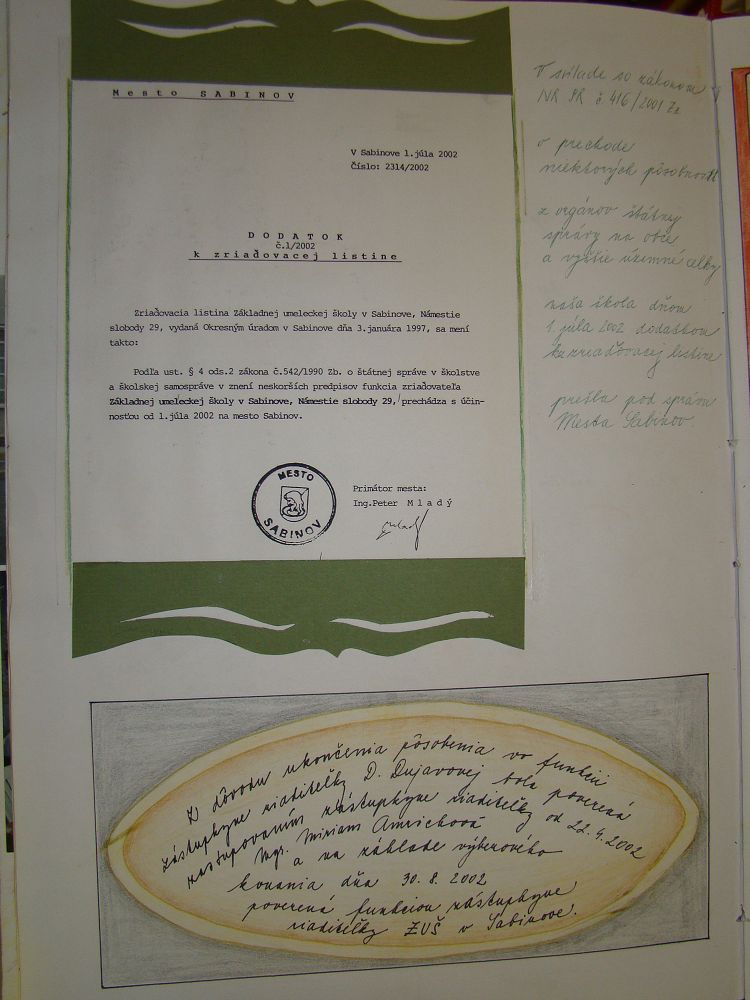 Mesto SABINOV
V Sabinove 1.júla 2002
Číslo: 2314/2002
DODATOK
č.1/2002
k zriaďovacej listine
Zriaďovacia listina Základnej umeleckej školy v Sabinove, Námestie
slobody 29, vydaná Okresným úradom v Sabinove dňa 3.januára 1997, sa mení
takto:
Podľa ust. § 4 ods.2 zákona č.542/1990 Zb. o štátnej správe v školstve
a školskej samospráve v znení neskorších predpisov funkcia zriaďovateľa
Základnej umeleckej školy v Sabinove, Námestie slobody 29, prechádza s účin-
nosťou od 1.júla 2002 na mesto Sabinov.
MESTO
SABINOV
Primátor mesta:
Ing.Peter Mladý
V súlade so zákonom
NR SR č. 416/2001 Zz
o prechode
niektorých pôsobností
z orgánov štátnej
správy na obce
a vyššie územné celky
naša škola dňom
1. júla 2002 dodatkom
ku zriaďovacej listine
prešla pod správu
Mesta Sabinov.
Z dôvodu ukončenia pôsobenia vo funkcii
zástupkyne riaditeľky D. Dujavovej bola poverená
zastupovaním zástupkyne riaditeľky od 22.4.2002
Mgr. Miriam Amrichová
a na základe výberového
konania dňa 30.8.2002
poverená funkciou zástupkyne
riaditeľky ZUŠ v Sabinove.